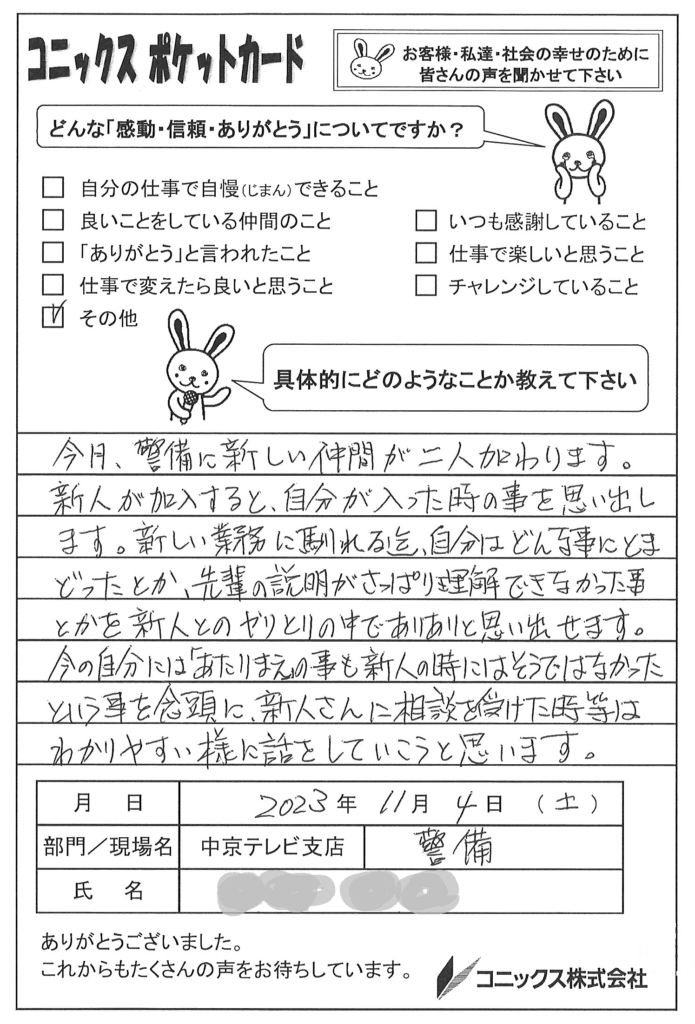 コニックス ポケットカード
お客様・私達・社会の幸せのために
皆さんの声を聞かせて下さい
どんな「感動・信頼・ありがとう」についてですか？
自分の仕事で自慢(じまん)できること
良いことをしている仲間のこと
いつも感謝していること
「ありがとう」と言われたこと
仕事で楽しいと思うこと
仕事で変えたら良いと思うこと
チャレンジしていること
その他
具体的にどのようなことか教えて下さい
今月、警備に新しい仲間が二人加わります。
新人が加入すると、自分が入った時の事を思い出し
ます。新しい業務に馴れる迄、自分はどんな事にとま
どったとか、先輩の説明がさっぱり理解できなかった事
とかを新人とのヤリとりの中でありありと思い出せます。
今の自分には「あたりまえ」の事も新人の時にはそうではなかった
という事を念頭に、新人さんに相談を受けた時等は
わかりやすい様に話をしていこうと思います。
月 日 2023年 11月 4日 (土)
部門／現場名 中京テレビ支店 警備
氏 名
ありがとうございました。
これからもたくさんの声をお待ちしています。
コニックス株式会社